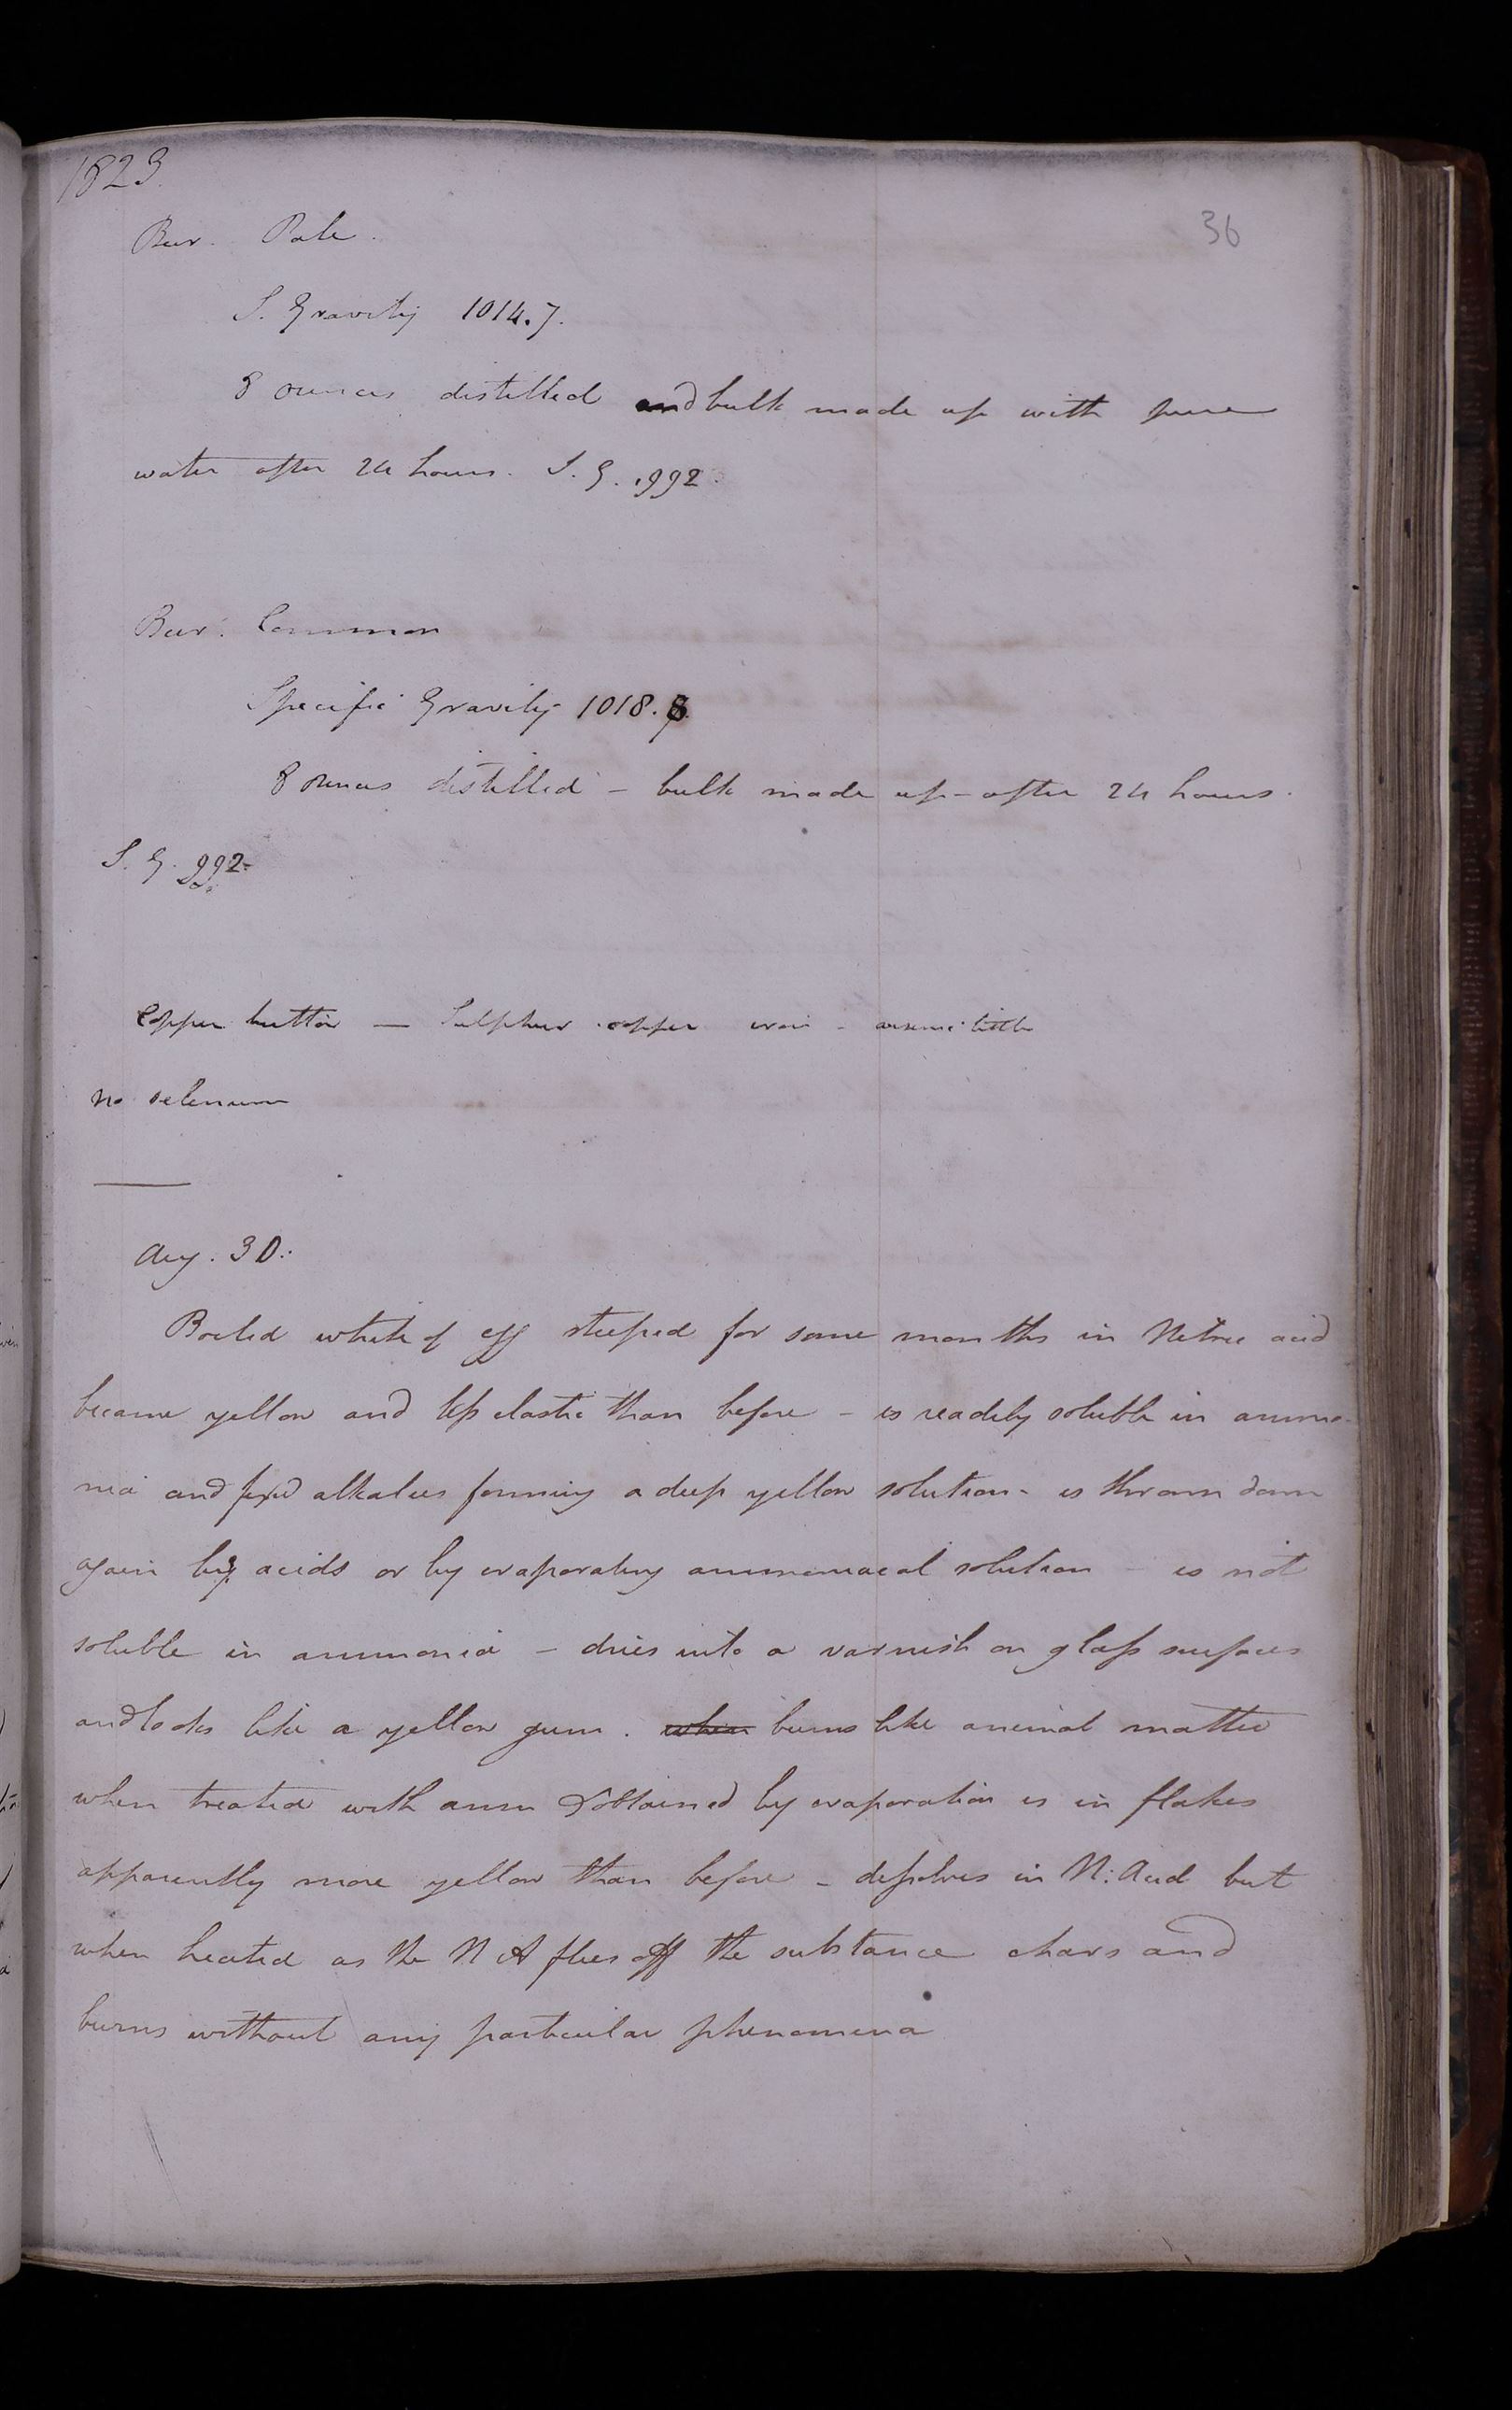 1823.
36
Beer. Pale.
S. Gravity 1014.7.
8 ounces distilled and bulk made up with pure
water after 24 hours. S. G. .992.
Beer. Common
Specific Gravity 1018.8
8 ounces distilled – bulk made up – after 24 hours.
S. G. 992
Copper button — Sulphur copper iron – arsenic little
no selenium
Aug. 30.
Boiled white of egg steeped for some months in Nitric acid
became yellow and less elastic than before – is readily soluble in ammo-
nia and fixed alkalies forming a deep yellow solution – is thrown down
again by acids or by evaporating ammoniacal solution – is not
soluble in ammonia – dries into a varnish on glass surfaces
and looks like a yellow gum. when burns like animal matter
when treated with amm & obtained by evaporation is in flakes
apparently more yellow than before – dissolves in N: Acid but
when heated as the N A flies off the substance chars and
burns without any particular phenomena